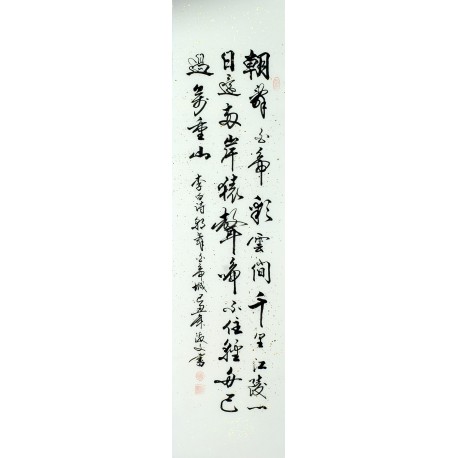 朝辭白帝彩雲間千里江陵一
日還兩岸猿聲啼不住輕舟已
過萬重山
李白诗朝辭白帝城